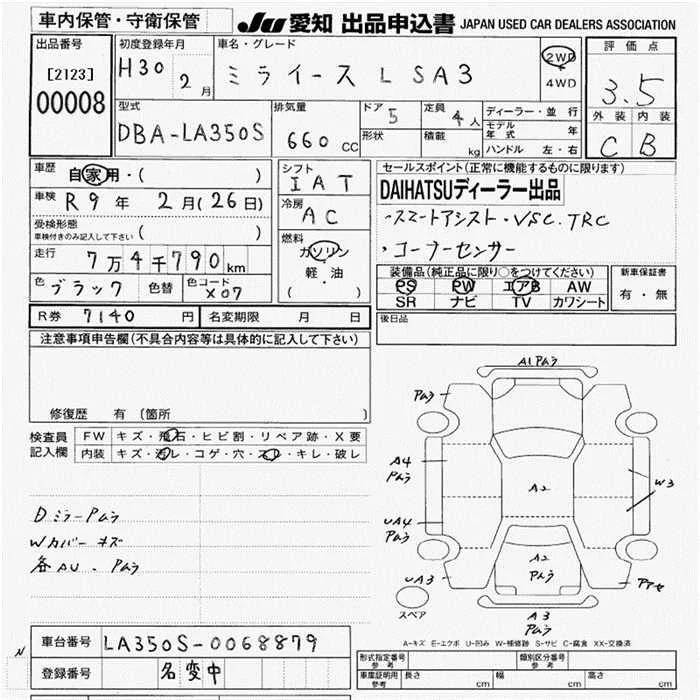 車内保管・守衛保管
JU 愛知 出品申込書 JAPAN USED CAR DEALERS ASSOCIATION
出品番号
[2123]
00008
初度登録年月
H30 2月
車名・グレード
ミライース L SA3
2WD
4WD
評価点
3.5
外装 内装
C B
型式
DBA-LA350S
排気量
660 CC
ドア 5
形状
定員 4人
積載 kg
ディーラー・並行
モデル年式 年
ハンドル 左・右
車歴 自家用・( )
車検 R9年 2月(26日)
受検形態
車検付きのみ記入して下さい ( )
走行 7万4千790km
色 ブラック 色替 色コード X07
シフト
IAT
冷房
AC
燃料
ガソリン
軽・油
( )
セールスポイント(正常に機能するものに限ります)
DAIHATSUディーラー出品
・スマートアシスト・VSC.TRC
・コーナーセンサー
装備品(純正品に限り○をつけてください)
PS PW エアB AW
SR ナビ TV カワシート
新車保証書
有・無
R券 7140円 名変期限 月 日
後日品
注意事項申告欄(不具合内容等は具体的に記入して下さい)
修復歴 有(箇所 )
検査員記入欄
FW キズ・飛石・ヒビ割・リペア跡・X要
内装 キズ・汚レ・コゲ・穴・スレ・キレ・破レ
Dミラー Pムラ
Wカバー キズ
各AU.Pムラ
A1 Pムラ
Pムラ
A4
Pムラ
A2
W3
UA4
Pムラ
A2
Pムラ
UA3
スペア
A3
Pムラ
A-キズ E-エクボ U-凹み W-補修跡 S-サビ C-腐食 XX-交換済
N
車台番号 LA350S-0068879
登録番号 名変中
形式指定番号
参考
類別区分番号
参考
車庫証明用
参考
長さ cm 幅 cm 高さ cm